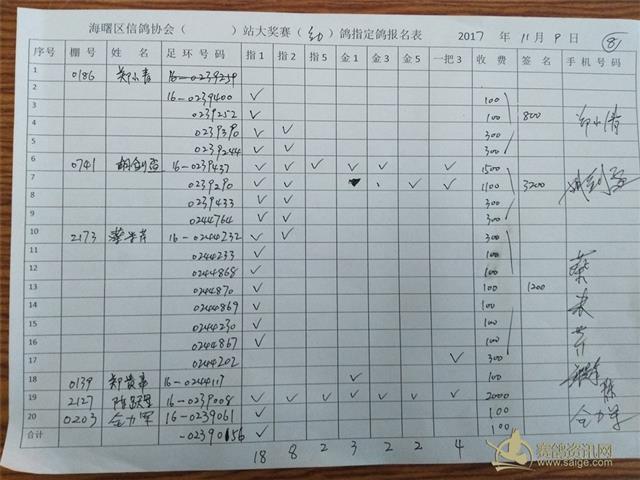 海曙区信鸽协会（ ）站大奖赛（幼）鸽指定鸽报名表 2017年11月9日 ⑧
序号 棚号 姓名 足环号码 指1 指2 指5 金1 金3 金5 一把3 收费 签名 手机号码
1 0186 郑小清 16-0239239
2 16-0239400 ✓ 100
3 0239252 ✓ 100 800 郑小清
4 0239390 ✓ ✓ 300
5 0239244 ✓ ✓ 300
6 0741 16-0239437 ✓ ✓ ✓ ✓ ✓ ✓ 1500
7 0239290 ✓ ✓ ✓ ✓ 1100 3200
8 0239433 ✓ ✓ 300
9 0244764 ✓ ✓ 300
10 2173 16-0244232 ✓ ✓ 300
11 0244233 ✓ 100
12 0244868 ✓ 100
13 0244870 ✓ 100 1200
14 0244869 ✓ 100
15 0244230 ✓ 100
16 0244867 ✓ 100
17 0244202 ✓ 300
18 0139 16-0244117 ✓ 100
19 2127 16-0239008 ✓ ✓ ✓ ✓ ✓ ✓ ✓ 2000
20 0203 全力军 16-0239061 ✓ 100 全力军
合计 -0239056 ✓ 100
18 8 2 3 2 2 4
赛鸽资讯网
www.saige.com